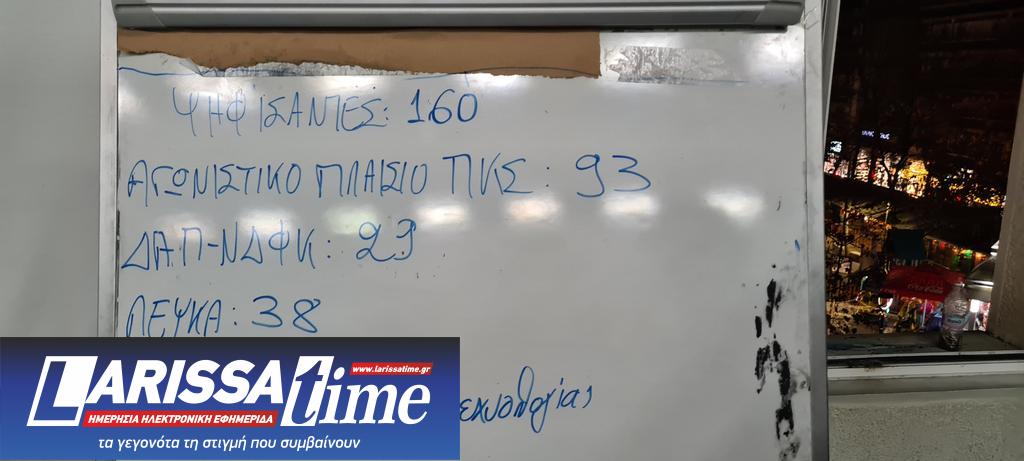 ΨΗΦΙΣΑΝΤΕΣ: 160
ΑΓΩΝΙΣΤΙΚΟ ΠΛΑΙΣΙΟ ΠΚΣ: 93
ΔΑΠ-ΝΔΦΚ: 29
ΛΕΥΚΑ: 38
εχνολογίας
LARISSAtime
www.larissatime.gr
ΗΜΕΡΗΣΙΑ ΗΛΕΚΤΡΟΝΙΚΗ ΕΦΗΜΕΡΙΔΑ
τα γεγονότα τη στιγμή που συμβαίνουν